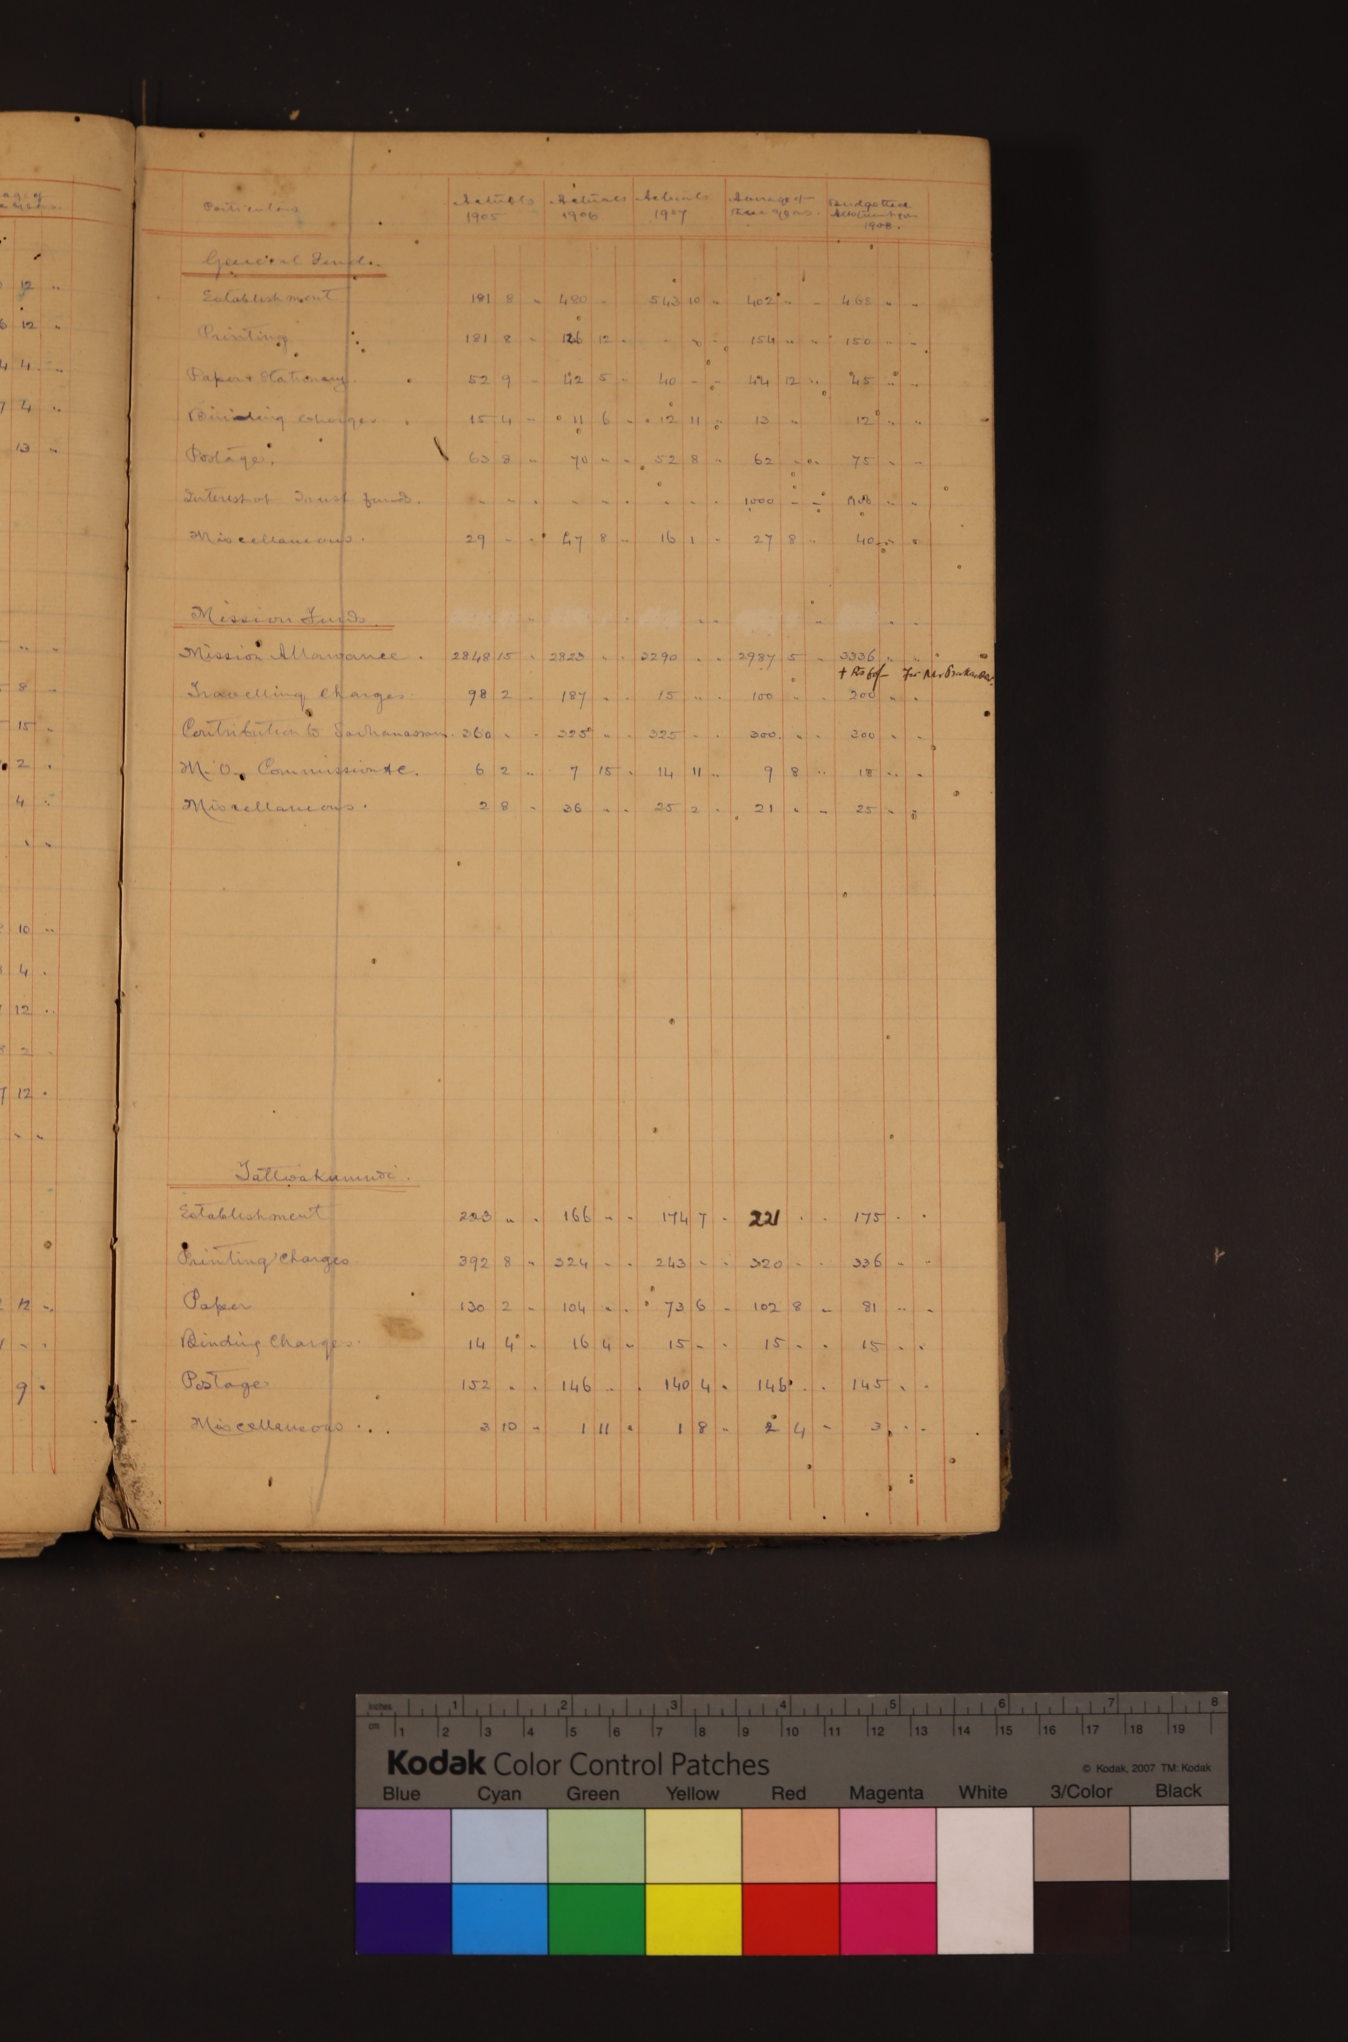 Particulars Actuals 1905 Actuals 1906 Actuals 1907 Average of three years. Budgetted Allotment for 1908.
General Fund.
Establishment 181 8 " 480 - 543 10 " 402 " - 468 " "
Printing 181 8 - 126 12 - - 154 " " 150 " -
Paper & Stationary. 52 9 - 42 5 - 40 - - 44 12 " 45 " "
Binding charges 15 4 - 11 6 - 12 11 13 " 12 " "
Postage. 63 8 " 70 - - 52 8 - 62 - - 75 - -
Interest of Trust funds. - - - - - - - - - 1000 - - - -
Miscellaneous. 29 - - 47 8 " 16 1 - 27 8 " 40 - -
Mission Funds.
Mission Allowance. 2848 15 - 2823 - - 3290 - - 2987 5 - 3336 " -
+ Rs 60/- For Mr
Travelling Charges. 98 2 - 187 - - 15 " - 100 - - 200 - -
Contribution to Sadhanasram. 360 - - 325 - - 325 - - 300. - - 300 - -
M. O. Commission &c. 6 2 " 7 15 - 14 11 " 9 8 " 18 " -
Miscellaneous. 2 8 - 36 - - 25 2 - 21 - - 25 - -
Tattwakumudi.
Establishment 223 " - 166 - - 174 7 - 221 - - 175 - -
Printing Charges 392 8 " 324 - - 243 - - 320 - - 336 - -
Paper 130 2 - 104 - - 73 6 - 102 8 - 81 " -
Binding Charges. 14 4 - 16 4 " 15 - - 15 - - 15 - -
Postage 152 - - 146 - - 140 4 - 146 - - 145 - -
Miscellaneous 3 10 - 1 11 - 1 8 - 2 4 - 3 - -
12 "
12 "
4
4 "
13 "
8 "
15 "
2 "
4
10 "
4 "
12 "
2 -
12 "
12 "
9 "
inches 1 2 3 4 5 6 7 8
cm 1 2 3 4 5 6 7 8 9 10 11 12 13 14 15 16 17 18 19
Kodak Color Control Patches © Kodak, 2007 TM: Kodak
Blue Cyan Green Yellow Red Magenta White 3/Color Black